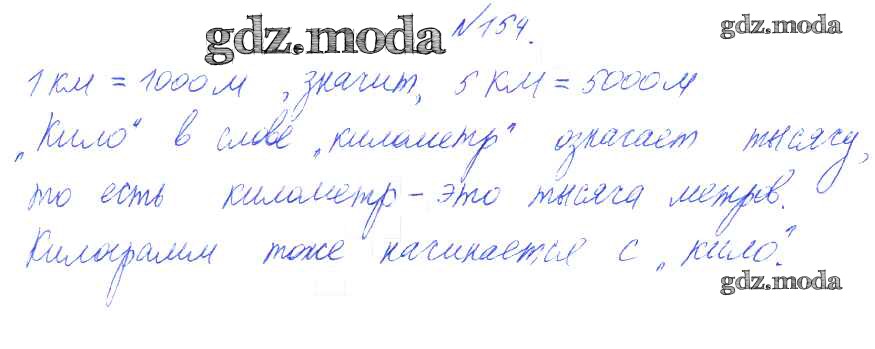 gdz.moda №154. gdz.moda
1 км = 1000 м, значит, 5 км = 5000 м
„Кило“ в слове „километр“ означает тысячу,
то есть километр – это тысяча метров.
Килограмм тоже начинается с „кило“.
gdz.moda